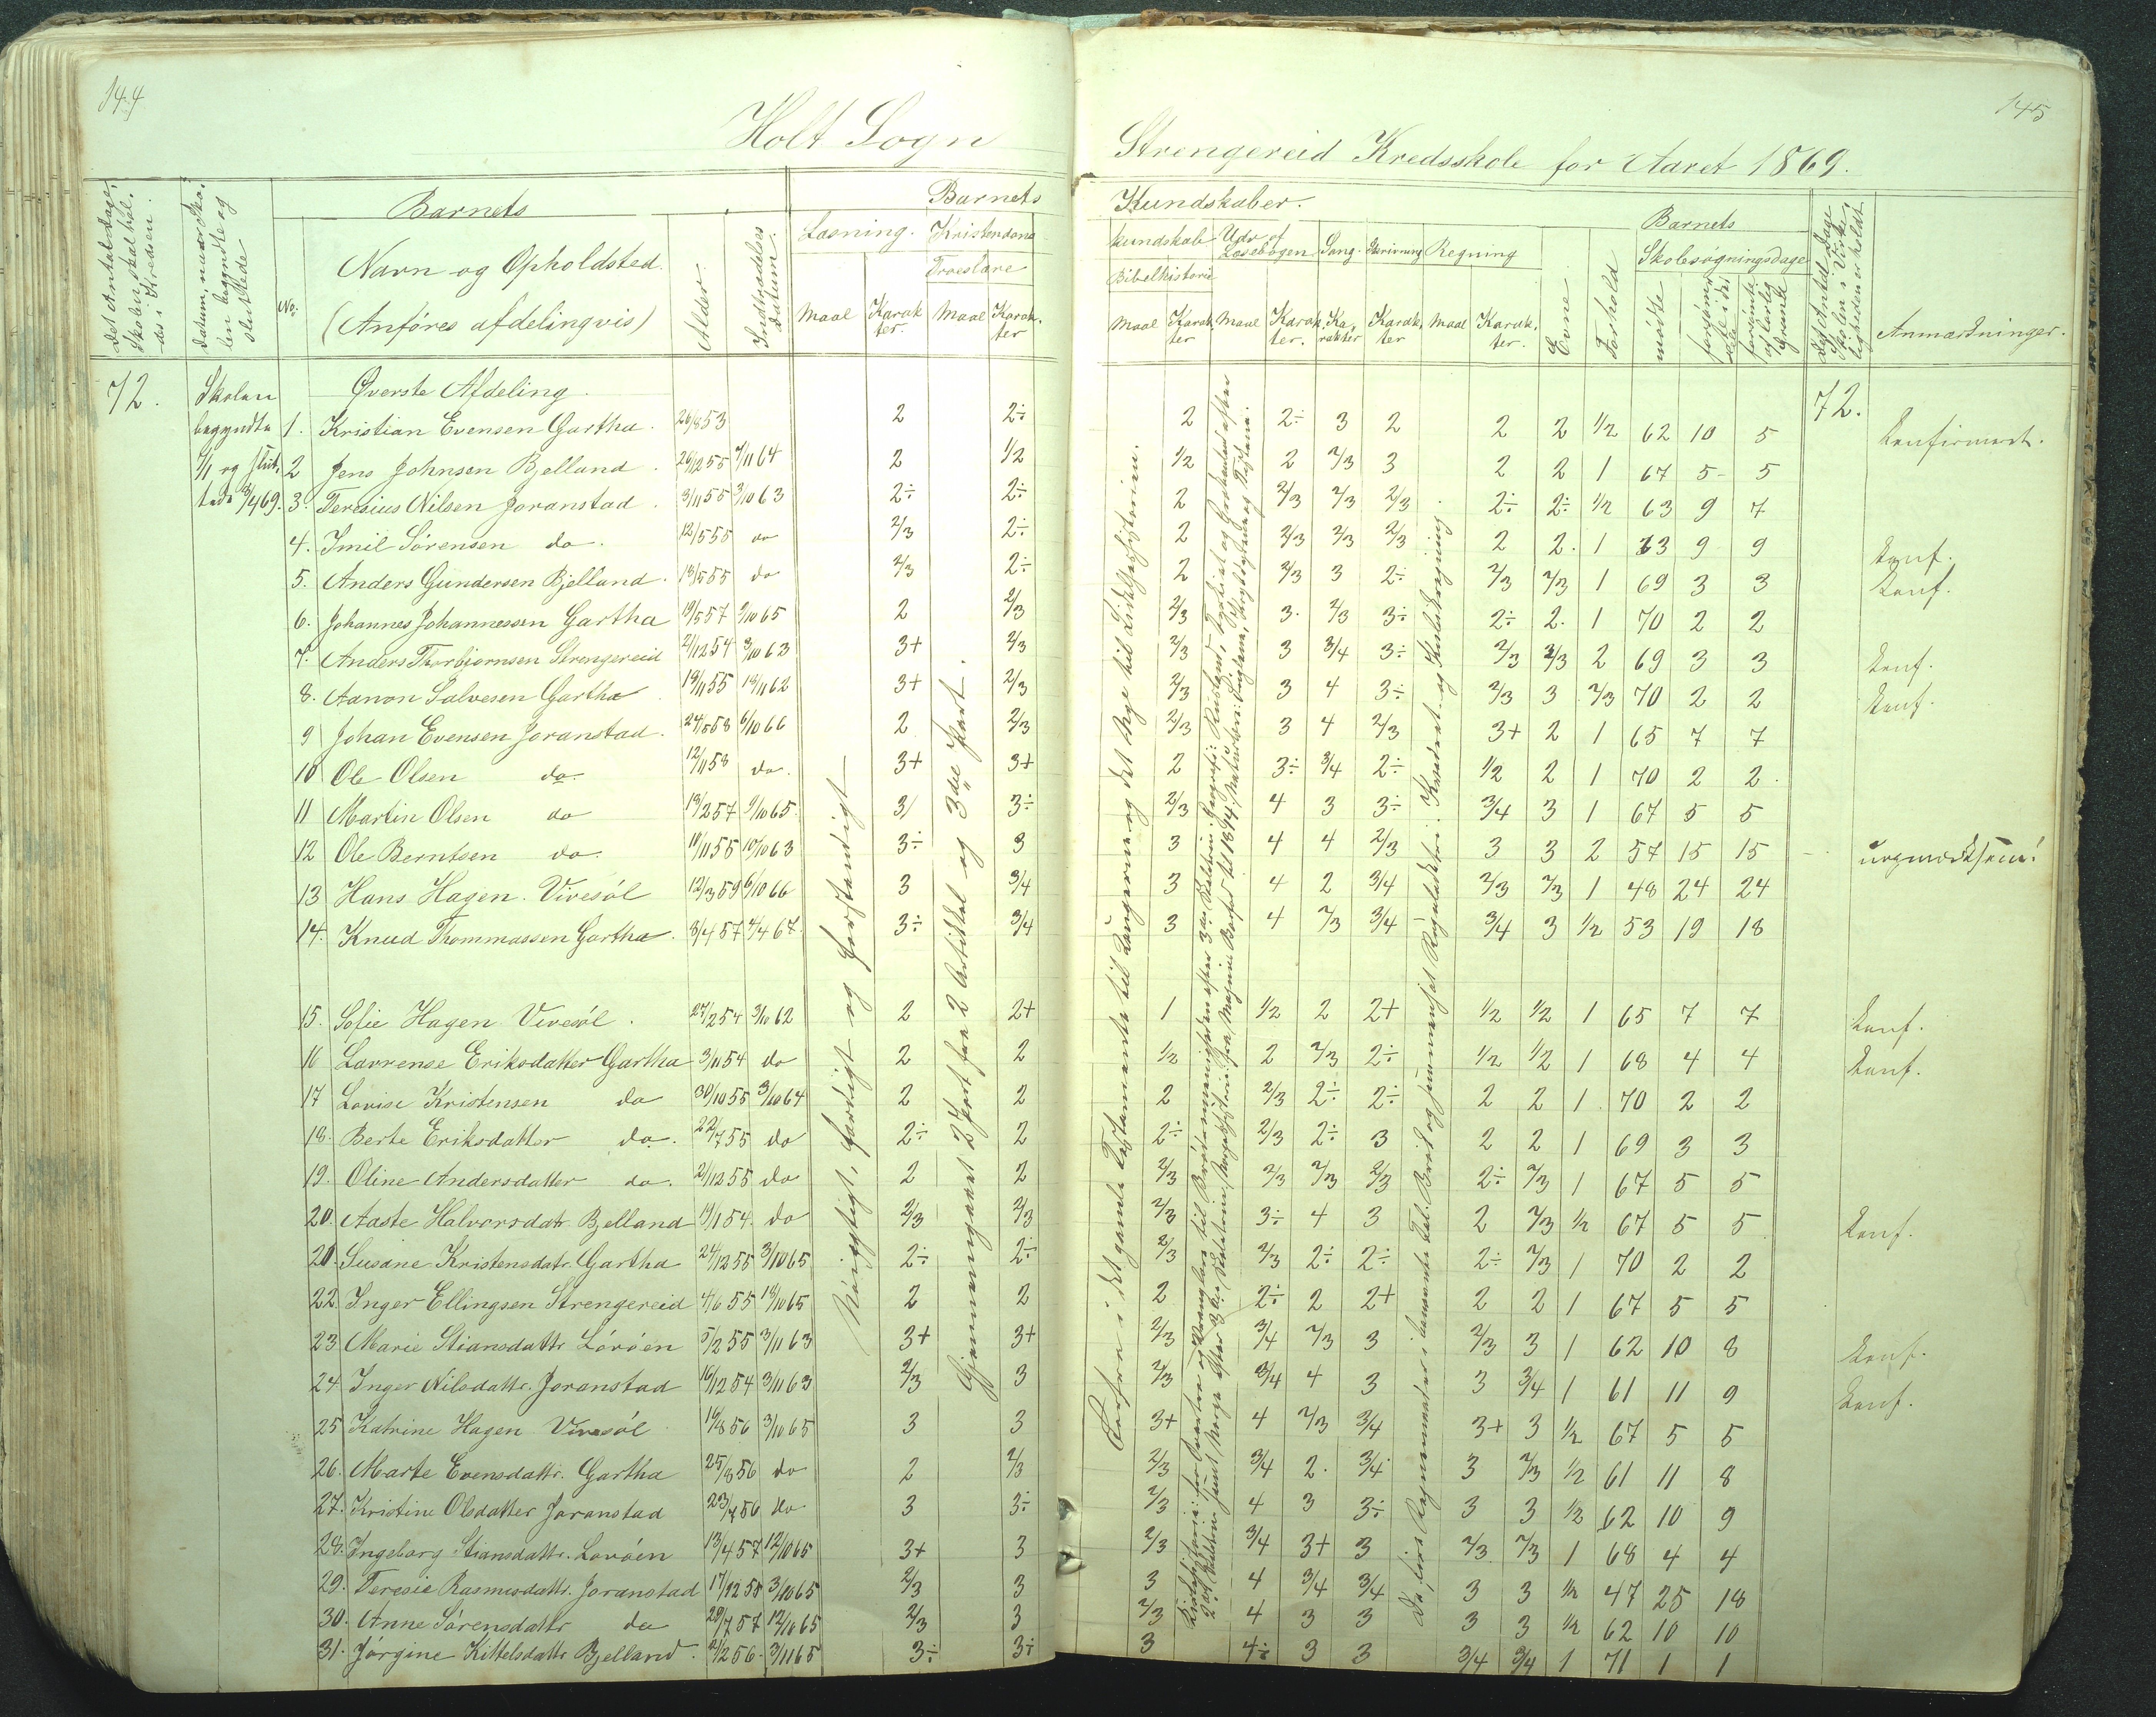 144
Holt Sogn
Det Antal Dage, Skolen skal holdes i Kredsen.
Datum, naar Skolen begyndte og sluttede
No:
Barnets
Navn og Opholdsted
(Anføres afdelingvis)
Alder.
Indtrædelses datum.
Barnets
Læsning.
Kristendoms
Troeslære
Maal
Karakter.
Maal
Karakter
72.
Skolen begyndte 7/1 og sluttede 3/4 69.
Øverste Afdeling
1. Kristian Evensen Gartha. 26/8 53 2 2÷
2 Jens Johnsen Bjelland. 26/2 55 7/11 64 2 1/2
3. Teresius Nilsen Joranstad. 3/11 55 3/10 63 2÷ 2÷
4. Imil Sörensen do. 12/5 55 do 2/3 2÷
5. Anders Gundersen Bjelland. 13/5 55 do 2/3 2÷
6. Johannes Johannessen Gartha 19/5 57 9/10 65 2 2/3
7. Anders Thorbjørnsen Strengereid 21/12 54 3/10 63 3+ 2/3
8. Aanon Salvesen Gartha 19/11 55 19/11 62 3+ 2/3
9 Johan Evensen Joranstad. 24/5 58 6/10 66 2 2/3
10 Ole Olsen do. 12/11 58 do. 3+ 3+
11 Martin Olsen do 19/2 57 9/10 65 3/ 3÷
12 Ole Berntsen do. 11/11 55 10/10 63 3÷ 3
13 Hans Hagen Vivesöl 12/3 59 6/10 66 3 3/4
14. Knud Thommassen Gartha. 8/4 57 4/4 67. 3÷ 3/4
15. Sofie Hagen Vivesöl. 27/2 54 3/10 62 2 2+
16 Lavrense Eriksdatter Gartha 3/11 54 do 2 2
17 Lovise Kristensen do 30/10 55 3/10 64 2 2
18. Berte Eriksdatter do. 22/7 55 do 2÷ 2
19. Oline Andersdatter do. 2/12 55 do 2 2
20. Aaste Halvorsdatr Bjelland 19/1 54. do 2/3 2/3
20. Susane Kristensdatr. Gartha 24/12 55 3/10 65 2÷ 2÷
22. Inger Ellingsen Strengereid 4/6 55 19/10 65 2 2
23. Marie Stiansdattr Lövöen 5/2 55 3/11 63 3+ 3+
24. Inger Nilsdattr. Joranstad 16/12 54 3/11 63 2/3 3
25 Katrine Hagen Vivesöl 16/8 56 3/10 65 3 3
26. Marte Evensdattr. Gartha 25/8 56 do 2 2/3
27. Kristine Olsdatter Joranstad 23/7 56 do. 3 3÷
28. Ingeborg Stiansdattr. Lovöen 13/4 57 12/10 65 3+ 3
29. Teresie Rasmusdattr. Joranstad 17/12 58 3/10 65 2/3 3
30. Anne Sörensdattr do 29/7 57 12/10 65 2/3 3
31. Jörgine Kittelsdattr Bjelland. 2/2 56. 3/11 65 3÷ 3÷
Nöiagtigt, færdigt og forstandigt
Gjennemgaaet 2 Part fra 2 Artikkel og 3die Part.
145
Strengereid Kredsskole for Aaret 1869.
Kundskaber.
kundskab
Bibelhistorie
Maal
Karakter
Udv. af Læsebogen
Maal
Karakter.
Sang.
Karakter
Skrivning
Karakter
Regning
Maal
Karakter.
Barnets
Evne
Forhold
Skolesøgningsdage
mødte
forsømte i det hele
forsømte af lovlig Grund
Det Antal Dage Skolen i Virkeligheden er holdt
Anmærkninger.
72.
2 2÷ 3 2 2 2 1/2 62 10 5 konfirmert.
1/2 2 2/3 3 2 2 1 67 5 5
2 2/3 2/3 2/3 2÷ 2÷ 1/2 63 9 7
2 2/3 2/3 2/3 2 2. 1 63 9 9 konf.
2 2/3 3 2÷ 2/3 2/3 1 69 3 3 konf.
2/3 3. 2/3 3÷ 2÷ 2. 1 70 2 2
2/3 3 3/4 3÷ 2/3 2/3 2 69 3 3 konf.
2/3 3 4 3÷ 2/3 3 2/3 70 2 2 konf.
2/3 3 4 2/3 3+ 2 1 65 7 7
2 3÷ 3/4 2÷ 1/2 2 1 70 2 2.
2/3 4 3 3÷ 3/4 3 1 67 5 5
3 4 4 2/3 3 3 2 57 15 15 uopmærksom!
3 4 2 3/4 2/3 2/3 1 48 24 24
3 4 2/3 3/4 3/4 3 1/2 53 19 18
1 1/2 2 2+ 1/2 1/2 1 65 7 7 konf.
1/2 2 2/3 2÷ 1/2 1/2 1 68 4 4 konf.
2 2/3 2÷ 2÷ 2 2 1 70 2 2
2÷ 2/3 2÷ 3 2 2 1 69 3 3
2/3 2/3 2/3 2/3 2÷ 2/3 1 67 5 5
2/3 3÷ 4 3 2 2/3 1/2 67 5 5 konf.
2/3 2/3 2÷ 2÷ 2÷ 2/3 1 70 2 2
2 2÷ 2 2+ 2 2 1 67 5 5
2/3 3/4 2/3 3 2/3 3 1 62 10 8 konf.
2/3 3/4 4 3 3 3/4 1 61 11 9 konf.
3+ 4 2/3 3/4 3+ 3 1/2 67 5 5
2/3 3/4 2. 3/4 3 2/3 1/2 61 11 8
2/3 4 3 3÷ 3 3 1/2 62 10 9
2/3 3/4 3+ 3 2/3 2/3 1 68 4 4
3 4 3/4 3/4 3 3 1/2 47 25 18
2/3 4 3 3 3 3 1/2 62 10 10
3 4÷ 3 3 3/4 3/4 1 71 1 1
i det gamle Testamente til Kongerne og det Nye til Lidelseshistorien.